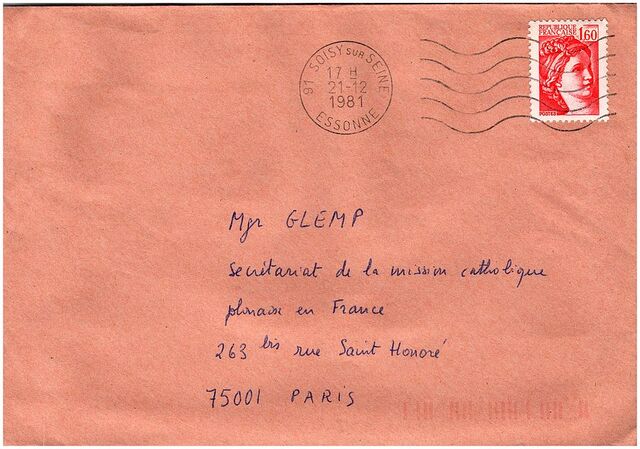 91 SOISY SUR SEINE
17 H
21-12
1981
ESSONNE
REPUBLIQUE
FRANÇAISE 1,60
POSTES
Mgr GLEMP
Secrétariat de la mission catholique
polonaise en France
263 bis rue Saint Honoré
75001 PARIS